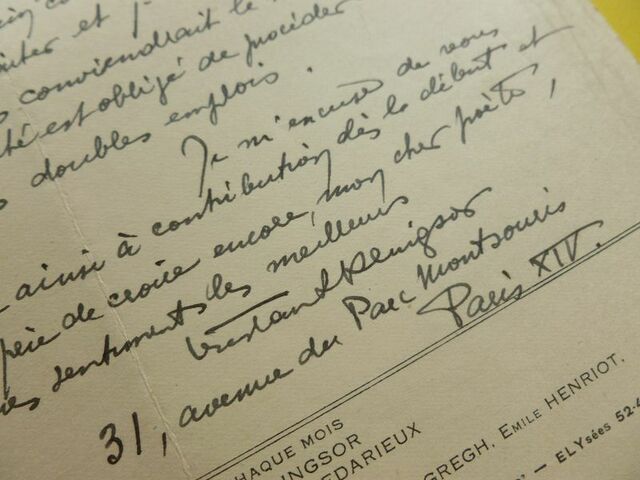 conviendrait le
té est obligé de procéder
doubles emplois.
Je m'excuse de vous
ainsi à contribution dès le début et
prie de croire encore, mon cher poète,
sentiments des meilleurs
Tristan Klingsor
31, avenue du Parc Montsouris
Paris XIV.
HAQUE MOIS
INGSOR
EDARIEUX
GREGH, EMILE HENRIOT,
— ELYsées 52-4